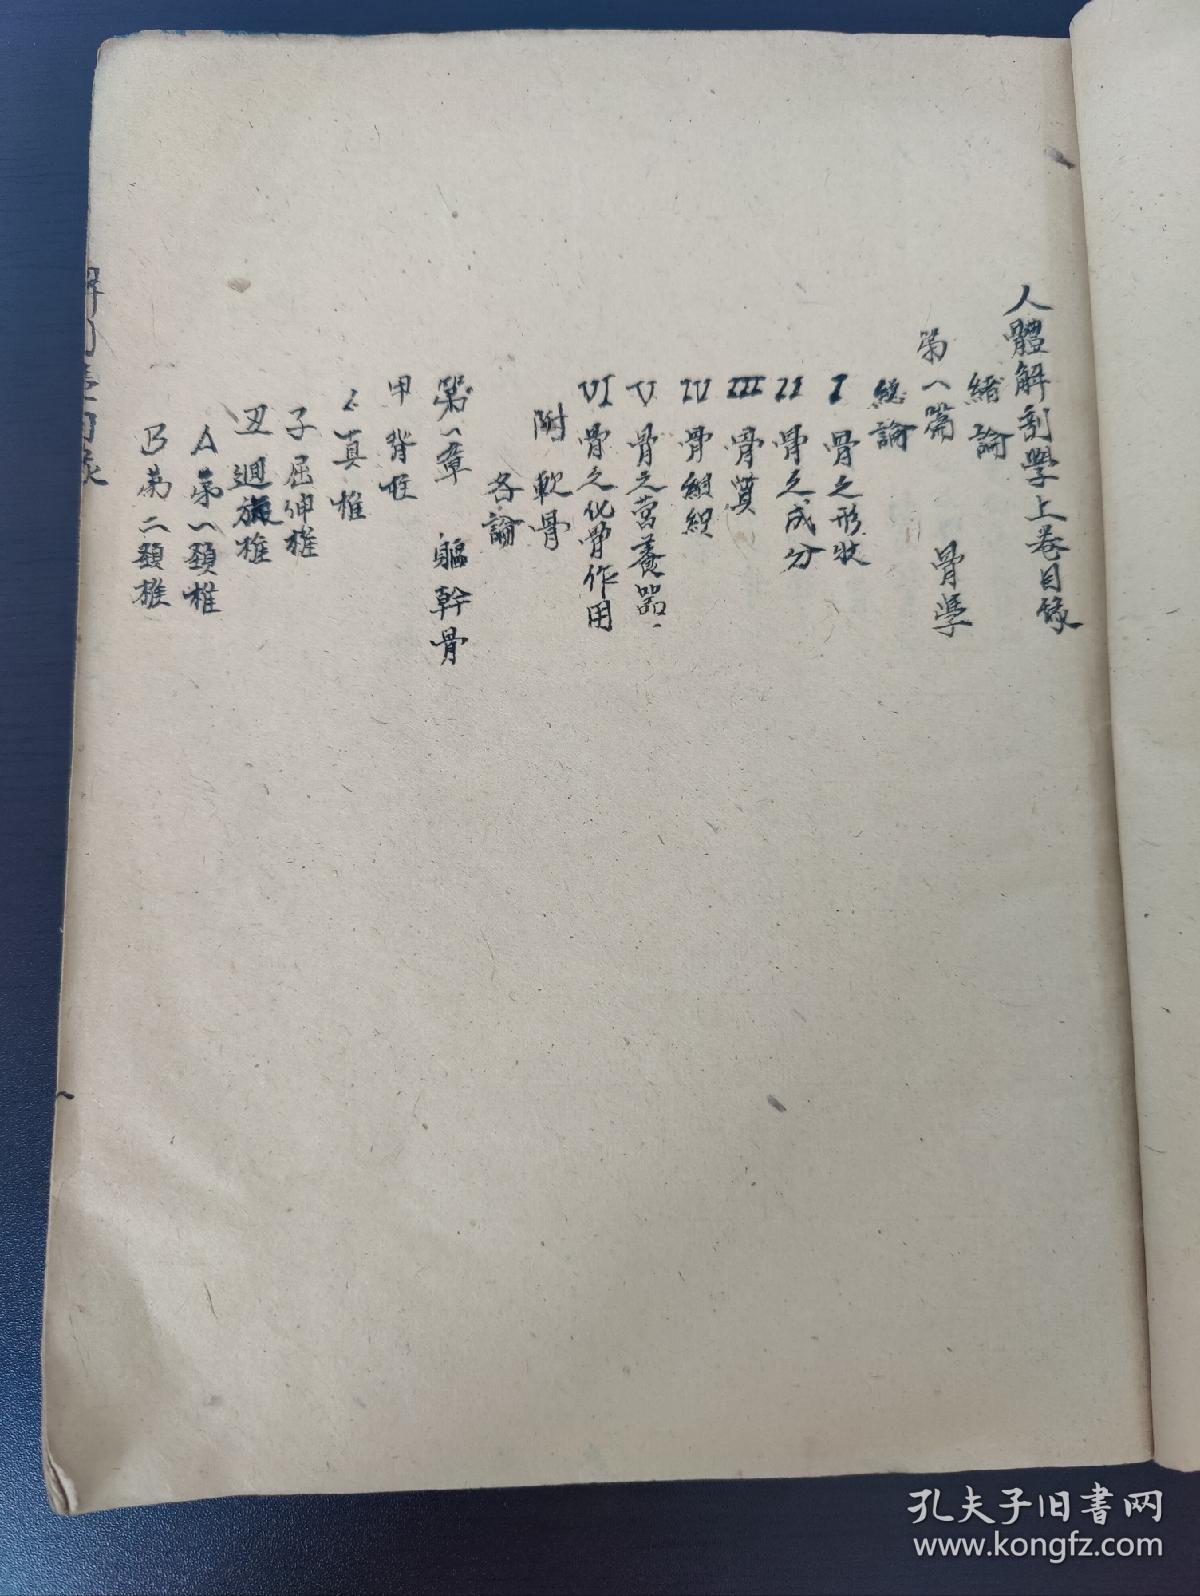 人體解剖學上卷目錄
緒論
第一篇 骨學
總論
I 骨之形狀
II 骨之成分
III 骨質
IV 骨組織
V 骨之營養器
VI 骨之化骨作用
附 軟骨
各論
第一章 軀幹骨
甲 脊柱
1 真椎
子 屈伸椎
丑 迴旋椎
A 第一頸椎
B 第二頸椎
孔夫子旧书网
www.kongfz.com